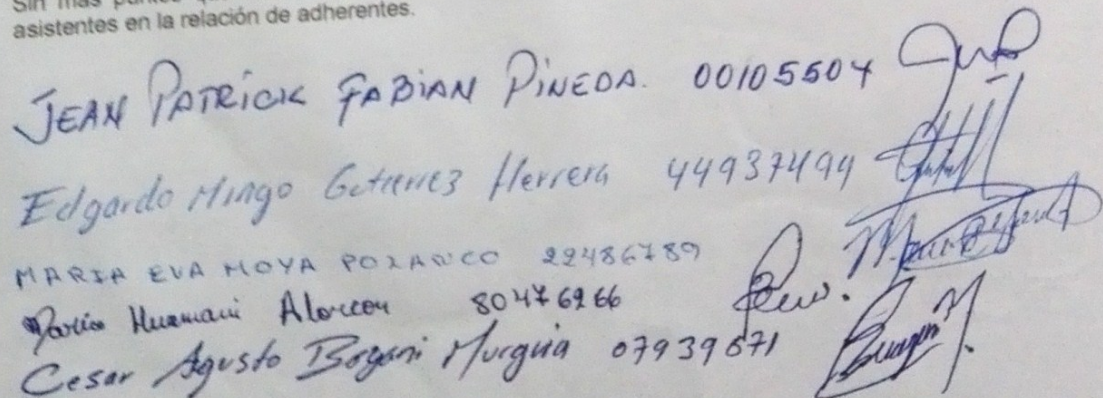 Sin más
asistentes en la relación de adherentes.
JEAN PATRICK FABIAN PINEDA. 00105504
Edgardo Mingo Gutierrez Herrera 44937494
MARIA EVA MOYA POLANCO 22486789
Huamani Alarcon 80476266
Cesar Agusto Bogani Murguia 07939671